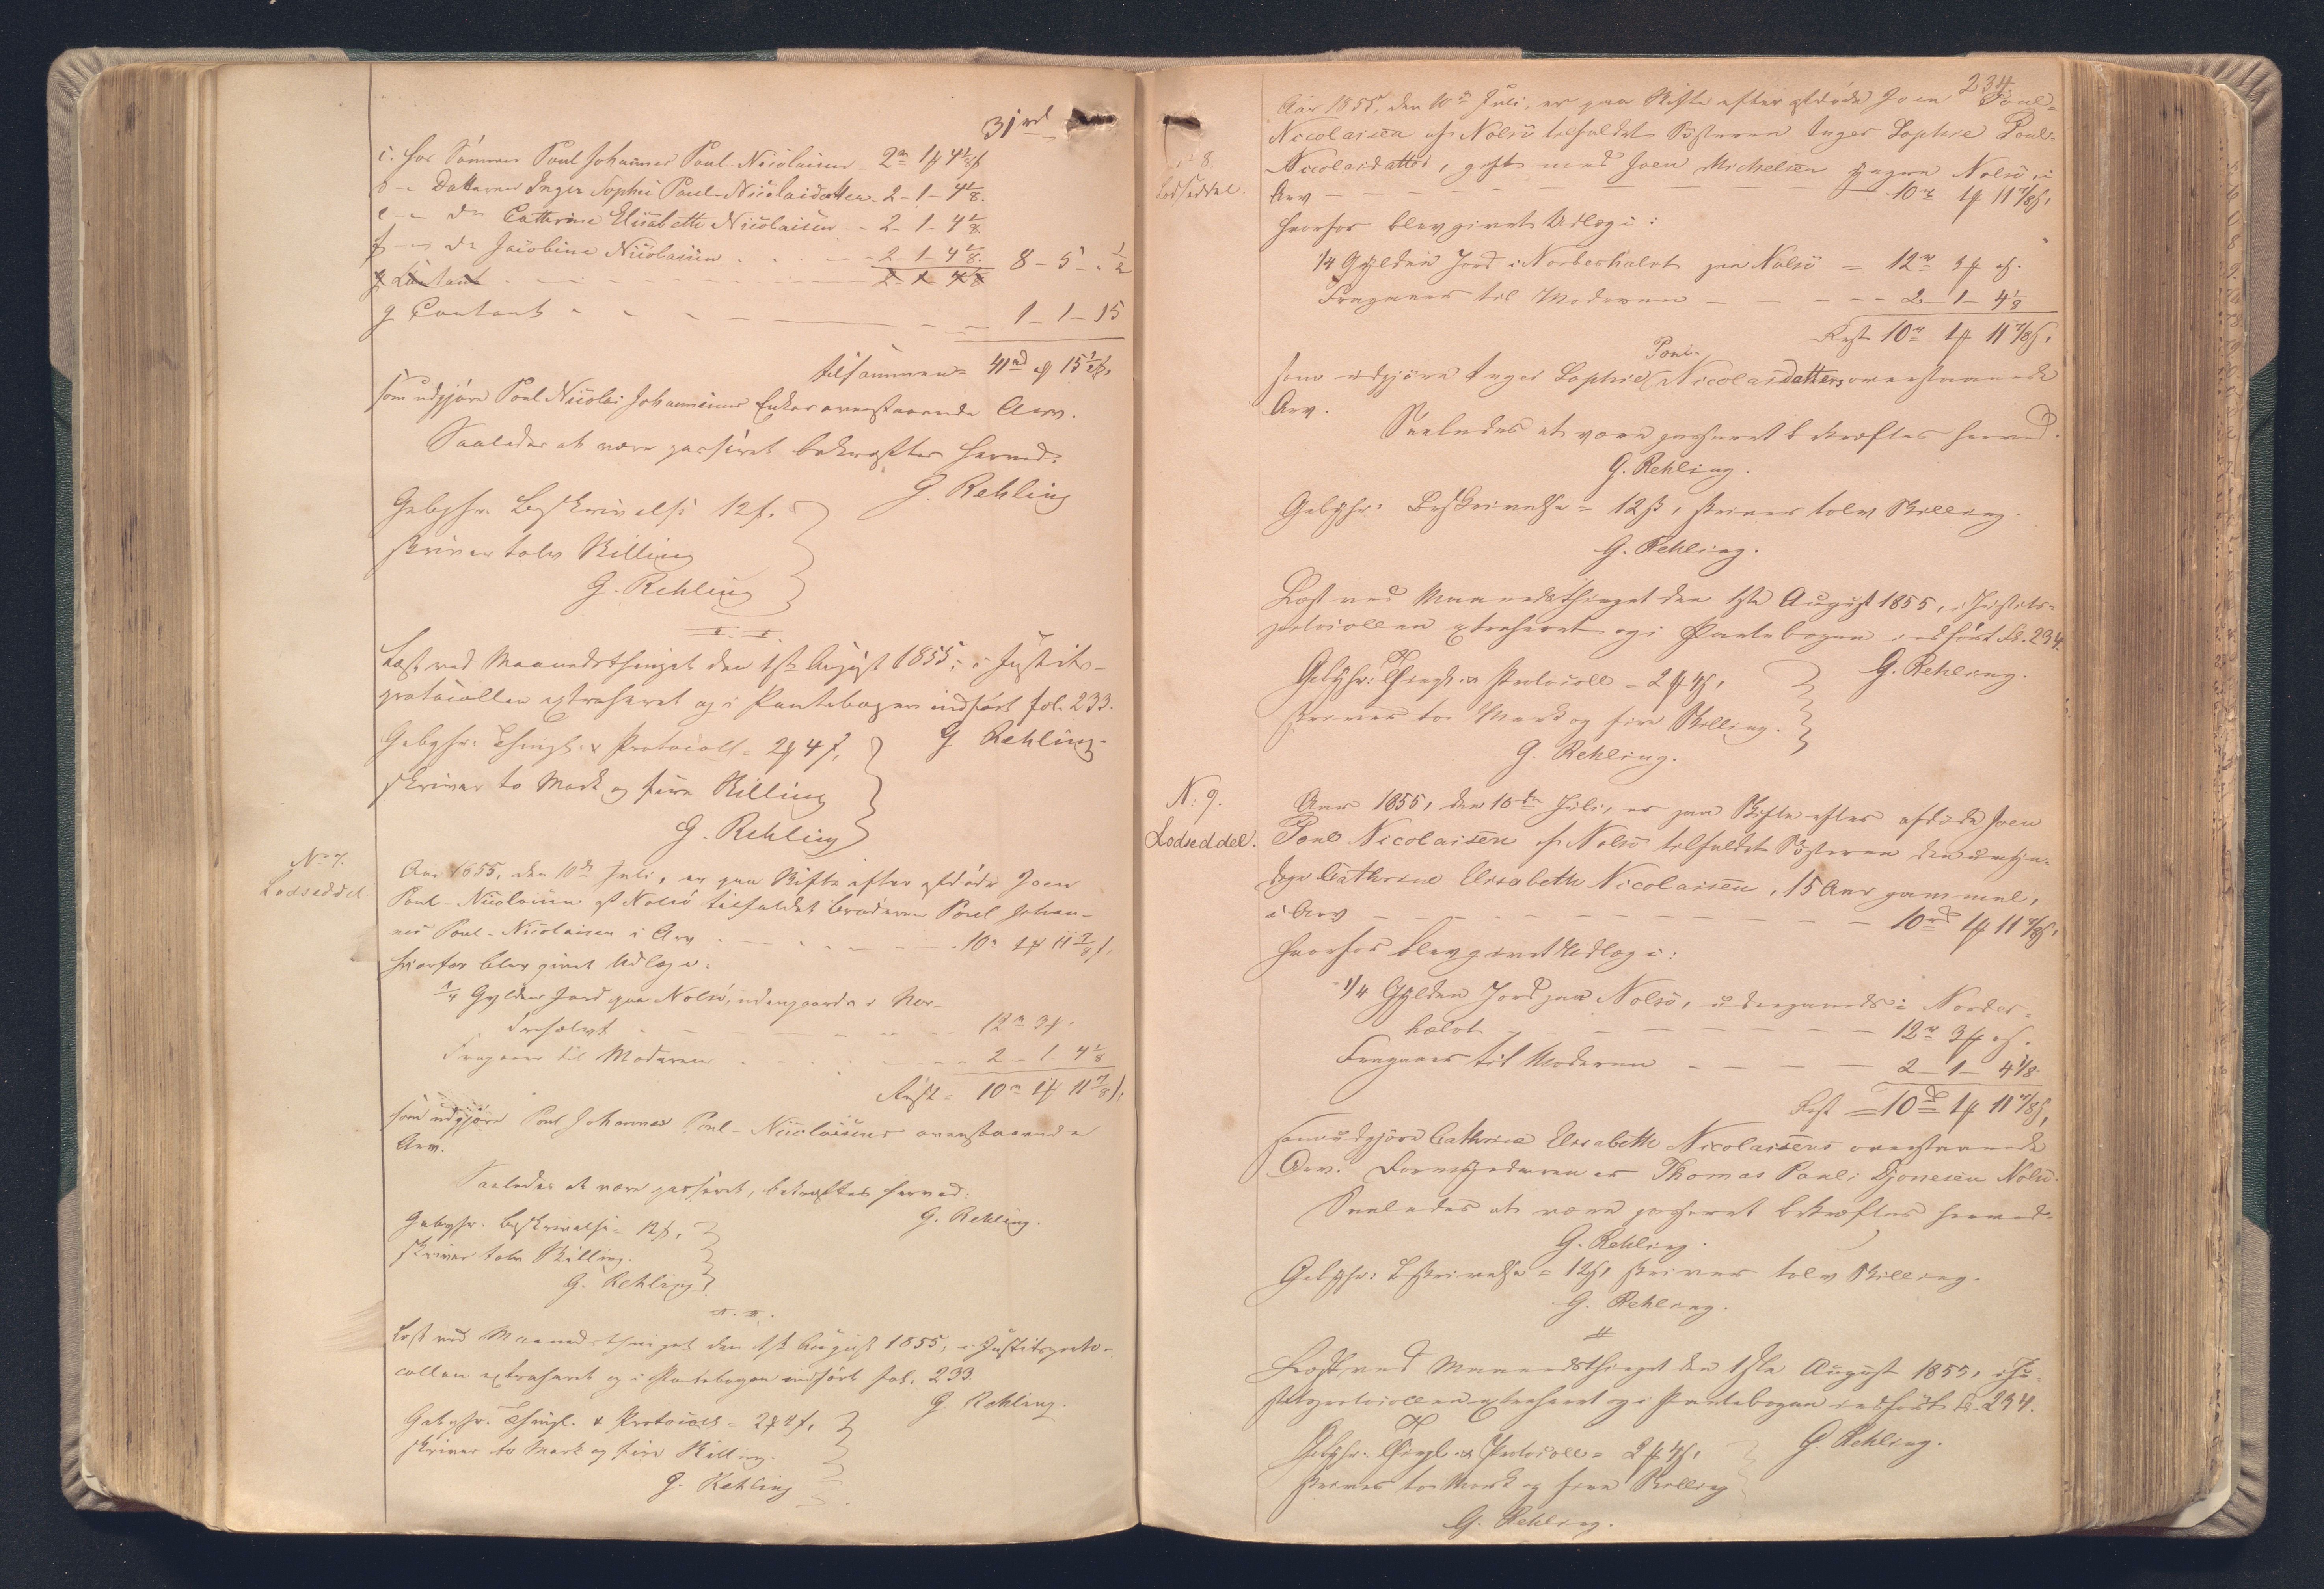 31 rd
c. hos Sönnen Poul Johannes Poul-Nicolaisen - 2 rd 1 ℳ 4 1/8 ß
d - " Datteren Inger Sophie Poul-Nicolaidatter - 2 - 1 - 4 1/8
e - " do Cathrine Elisabeth Nicolaisen - 2 - 1 - 4 1/8
f - " do Jacobine Nicolaisen - - - 2 - 1 - 4 1/8 8 - 5 - " 1/2
g Contant - - - 2 1 4 1/8
g Contant - - - - 1 - 1 - 15
tilsammen = 41 rd " ℳ 15 1/2 ß,
som udgjøre Poul Nicolai Johannesens Enkes ovenstaaende Arv.
Saaledes at være passeret bekræftes herved.
G. Rehling
Gebyhr. Beskrivelse 12 ß.
skriver tolv Skilling
G. Rehling
Læst ved Maanedsthinget den 1ste August 1855, i Justits-
protocollen extraheret og i Pantebogen indført fol. 233.
G Rehling.
Gebyhr. Thingl. & Protocoll = 2 ℳ 4 ß,
skriver to Mark og fire Skilling
G. Rehling
No 7.
Lodseddel.
Aar 1855, den 10de Juli, er paa Skifte efter afdøde Joen
Poul-Nicolaisen af Nolsö tilfaldet Broderen Poul Johan-
nes Poul-Nicolaisen i Arv - - - 10 rd 1 ℳ 11 7/8 ß,
hvorfor blev givet Udlæg i:
1/4 Gylden Jord paa Nolsö, udengaards i Nor-
derhalvt - - - 12 rd 3 ℳ "
Fragaaer til Moderen - - - 2 - 1 - 4 1/8
Rest = 10 rd 1 ℳ 11 7/8 ß,
som udgjøre Poul Johannes Poul-Nicolaisens ovenstaaende
Arv.
Saaledes at være passeret, bekræftes herved.
G. Rehling.
Gebyhr. Beskrivelse = 12 ß,
skriver tolv Skilling.
G. Rehling
Læst ved Maanedsthinget den 1ste August 1855, i Justitsproto-
collen extraheret og i Pantebogen indført fol. 233.
G. Rehling.
Gebyhr. Thingl. & Protocoll = 2 ℳ 4 ß,
skriver to Mark og fire Skilling.
G. Rehling
234.
8.
Lodseddel.
Aar 1855, den 10de Juli, er paa Skifte efter afdøde Joen Poul-
Nicolaisen af Nolsö tilfaldet Søsteren Inger Sophie Pouls-
Nicolaidatter, gift med Joen Michelsen yngre Nolsö, i
Arv - - - 10 rd 1 ℳ 11 7/8 ß,
hvorfor blev givet Udlæg i:
1/4 Gylden Jord i Norderhalvt paa Nolsö = 12 rd 3 ℳ " ß.
Fragaaer til Moderen - - - 2 - 1 - 4 1/8
Rest 10 rd 1 ℳ 11 7/8 ß,
Poul-
som udgjøre Inger Sophie Nicolaidatters ovenstaaende
Arv.
Saaledes at være passeret bekræftes herved.
G. Rehling.
Gebyhr: Beskrivelse = 12 ß, skriver tolv Skilling.
G. Rehling.
Læst ved Maanedsthinget den 1ste August 1855, i Justits-
protocollen extraheret og i Pantebogen indført Fol. 234.
G. Rehling.
Gebyhr: Thingl. & Protocoll = 2 ℳ 4 ß,
skriver to Mark og fire Skilling.
G. Rehling.
N. 9.
Lodseddel.
Aar 1855, den 10de Juli, er paa Skifte efter afdøde Joen
Poul Nicolaisen af Nolsö tilfaldet Søsteren den umyn-
dige Cathrine Elisabeth Nicolaisen, 15 Aar gammel,
i Arv - - - 10 rd 1 ℳ 11 7/8 ß,
hvorfor blev givet Udlæg i:
1/4 Gylden Jord paa Nolsö, udengaards i Norder-
halvt - - - 12 rd 3 ℳ " ß.
Fragaaer til Moderen - - - 2 - 1 - 4 1/8
Rest = 10 rd 1 ℳ 11 7/8 ß,
som udgjøre Cathrine Elisabeth Nicolaisens ovenstaaende
Arv. Formynderen er Thomas Pauli Djonesen Nolsö.
Saaledes at være passeret bekræftes herved.
G. Rehling.
Gebyhr: Beskrivelse = 12 ß, skriver tolv Skilling.
G. Rehling.
Læst ved Maanedsthinget den 1ste August 1855, i Ju-
stitsprotocollen extraheret og i Pantebogen indført Fol. 234.
G. Rehling.
Gebyhr. Thingl. & Protocoll = 2 ℳ 4 ß,
skriver to Mark og fire Skilling
G. Rehling.